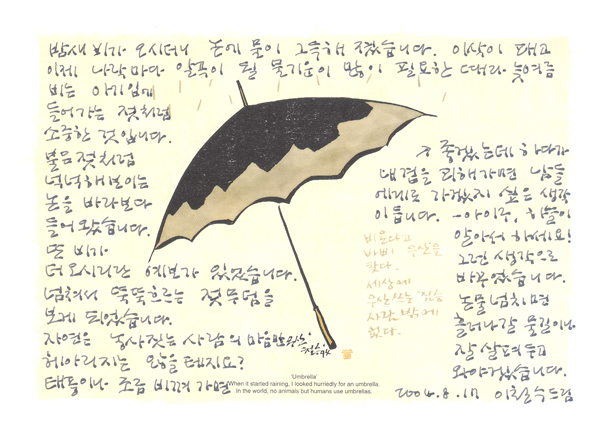 밤새 비가 오시더니 논에 물이 그득해 졌습니다. 이삭이 패고
이제 나락마다 알곡이 될 물기운이 많이 필요한 때라 늦여름
비는 아기입에
들어가는 젖처럼
소중한 것입니다.
불은젖처럼
넉넉해보이는
논을 바라보다
들어왔습니다.
또 비가
더 오시리란 예보가 있었습니다.
넘쳐서 뚝뚝흐르는 젖무덤을
보게 되었습니다.
자연은 농사짓는 사람의 마음만
헤아리지는 않을테지요?
태풍이나 조금 비껴가면
좋겠는데 하다가
내곁을 피해가면 남들
에게로 가겠지 싶은 생각
이 듭니다. -아이구, 하늘이
알아서 하세요!
그런 생각으로
바꾸었습니다.
논물 넘치면
흘러나갈 물길이나
잘 살펴두고
와야겠습니다.
2004.8.17 이철수드림
비온다고
바삐 우산을
찾다.
세상에
우산쓰는 짐승
사람밖에
없다.
'Umbrella'
When it started raining, I looked hurriedly for an umbrella.
In the world, no animals but humans use umbrellas.